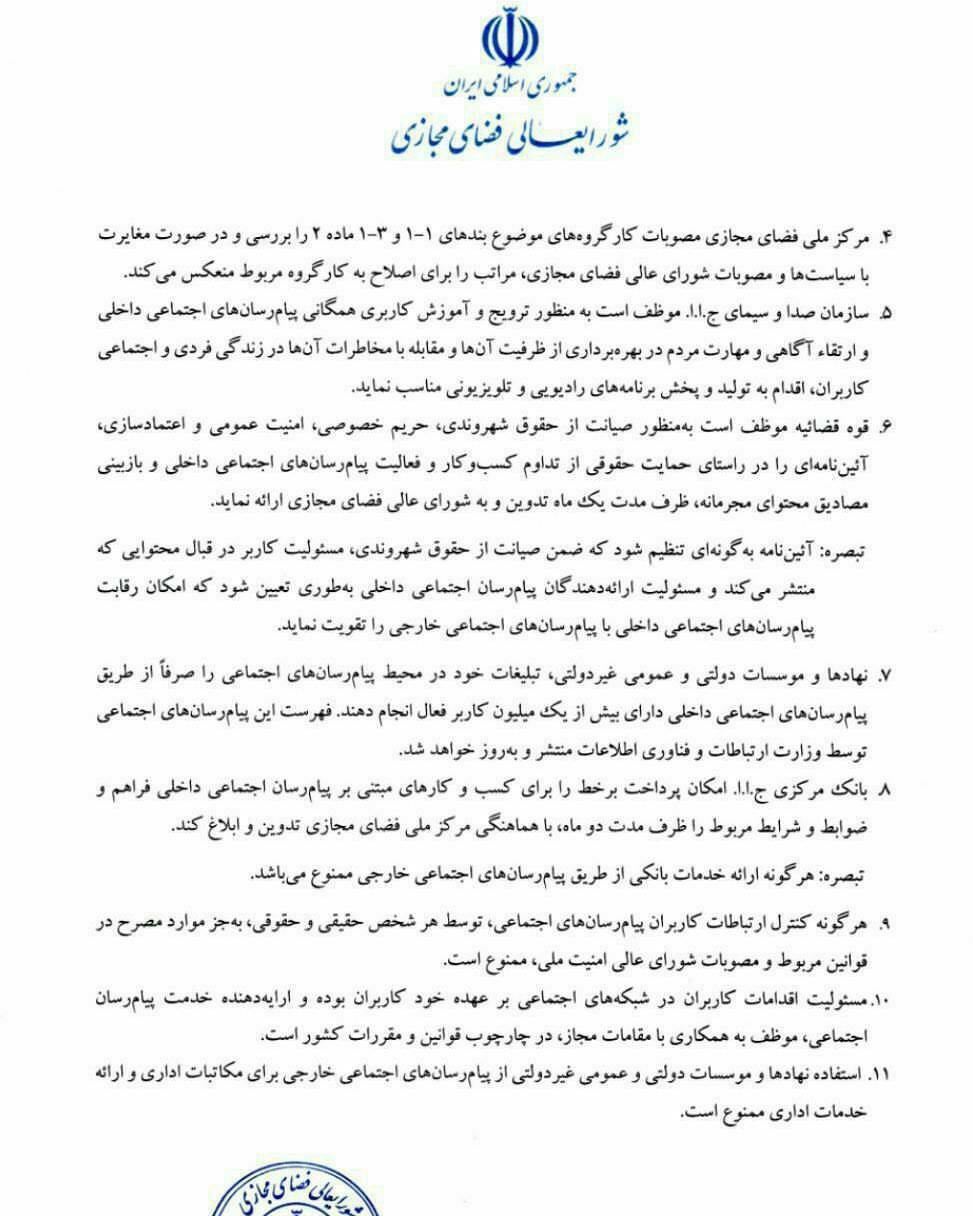 جمهوری اسلامی ایران
شورایعالی فضای مجازی
۴. مرکز ملی فضای مجازی مصوبات کارگروه‌های موضوع بندهای ۱-۱ و ۳-۱ ماده ۲ را بررسی و در صورت مغایرت
با سیاست‌ها و مصوبات شورای عالی فضای مجازی، مراتب را برای اصلاح به کارگروه مربوط منعکس می‌کند.
۵. سازمان صدا و سیمای ج.ا.ا. موظف است به منظور ترویج و آموزش کاربری همگانی پیام‌رسان‌های اجتماعی داخلی
و ارتقاء آگاهی و مهارت مردم در بهره‌برداری از ظرفیت آن‌ها و مقابله با مخاطرات آن‌ها در زندگی فردی و اجتماعی
کاربران، اقدام به تولید و پخش برنامه‌های رادیویی و تلویزیونی مناسب نماید.
۶. قوه قضائیه موظف است به‌منظور صیانت از حقوق شهروندی، حریم خصوصی، امنیت عمومی و اعتمادسازی،
آئین‌نامه‌ای را در راستای حمایت حقوقی از تداوم کسب‌وکار و فعالیت پیام‌رسان‌های اجتماعی داخلی و بازبینی
مصادیق محتوای مجرمانه، ظرف مدت یک ماه تدوین و به شورای عالی فضای مجازی ارائه نماید.
تبصره: آئین‌نامه به‌گونه‌ای تنظیم شود که ضمن صیانت از حقوق شهروندی، مسئولیت کاربر در قبال محتوایی که
منتشر می‌کند و مسئولیت ارائه‌دهندگان پیام‌رسان اجتماعی داخلی به‌طوری تعیین شود که امکان رقابت
پیام‌رسان‌های اجتماعی داخلی با پیام‌رسان‌های اجتماعی خارجی را تقویت نماید.
۷. نهادها و موسسات دولتی و عمومی غیردولتی، تبلیغات خود در محیط پیام‌رسان‌های اجتماعی را صرفاً از طریق
پیام‌رسان‌های اجتماعی داخلی دارای بیش از یک میلیون کاربر فعال انجام دهند. فهرست این پیام‌رسان‌های اجتماعی
توسط وزارت ارتباطات و فناوری اطلاعات منتشر و به‌روز خواهد شد.
۸. بانک مرکزی ج.ا.ا. امکان پرداخت برخط را برای کسب و کارهای مبتنی بر پیام‌رسان اجتماعی داخلی فراهم و
ضوابط و شرایط مربوط را ظرف مدت دو ماه، با هماهنگی مرکز ملی فضای مجازی تدوین و ابلاغ کند.
تبصره: هرگونه ارائه خدمات بانکی از طریق پیام‌رسان‌های اجتماعی خارجی ممنوع می‌باشد.
۹. هرگونه کنترل ارتباطات کاربران پیام‌رسان‌های اجتماعی، توسط هر شخص حقیقی و حقوقی، به‌جز موارد مصرح در
قوانین مربوط و مصوبات شورای عالی امنیت ملی، ممنوع است.
۱۰. مسئولیت اقدامات کاربران در شبکه‌های اجتماعی بر عهده خود کاربران بوده و ارایه‌دهنده خدمت پیام‌رسان
اجتماعی، موظف به همکاری با مقامات مجاز، در چارچوب قوانین و مقررات کشور است.
۱۱. استفاده نهادها و موسسات دولتی و عمومی غیردولتی از پیام‌رسان‌های اجتماعی خارجی برای مکاتبات اداری و ارائه
خدمات اداری ممنوع است.
شورایعالی فضای مجازی